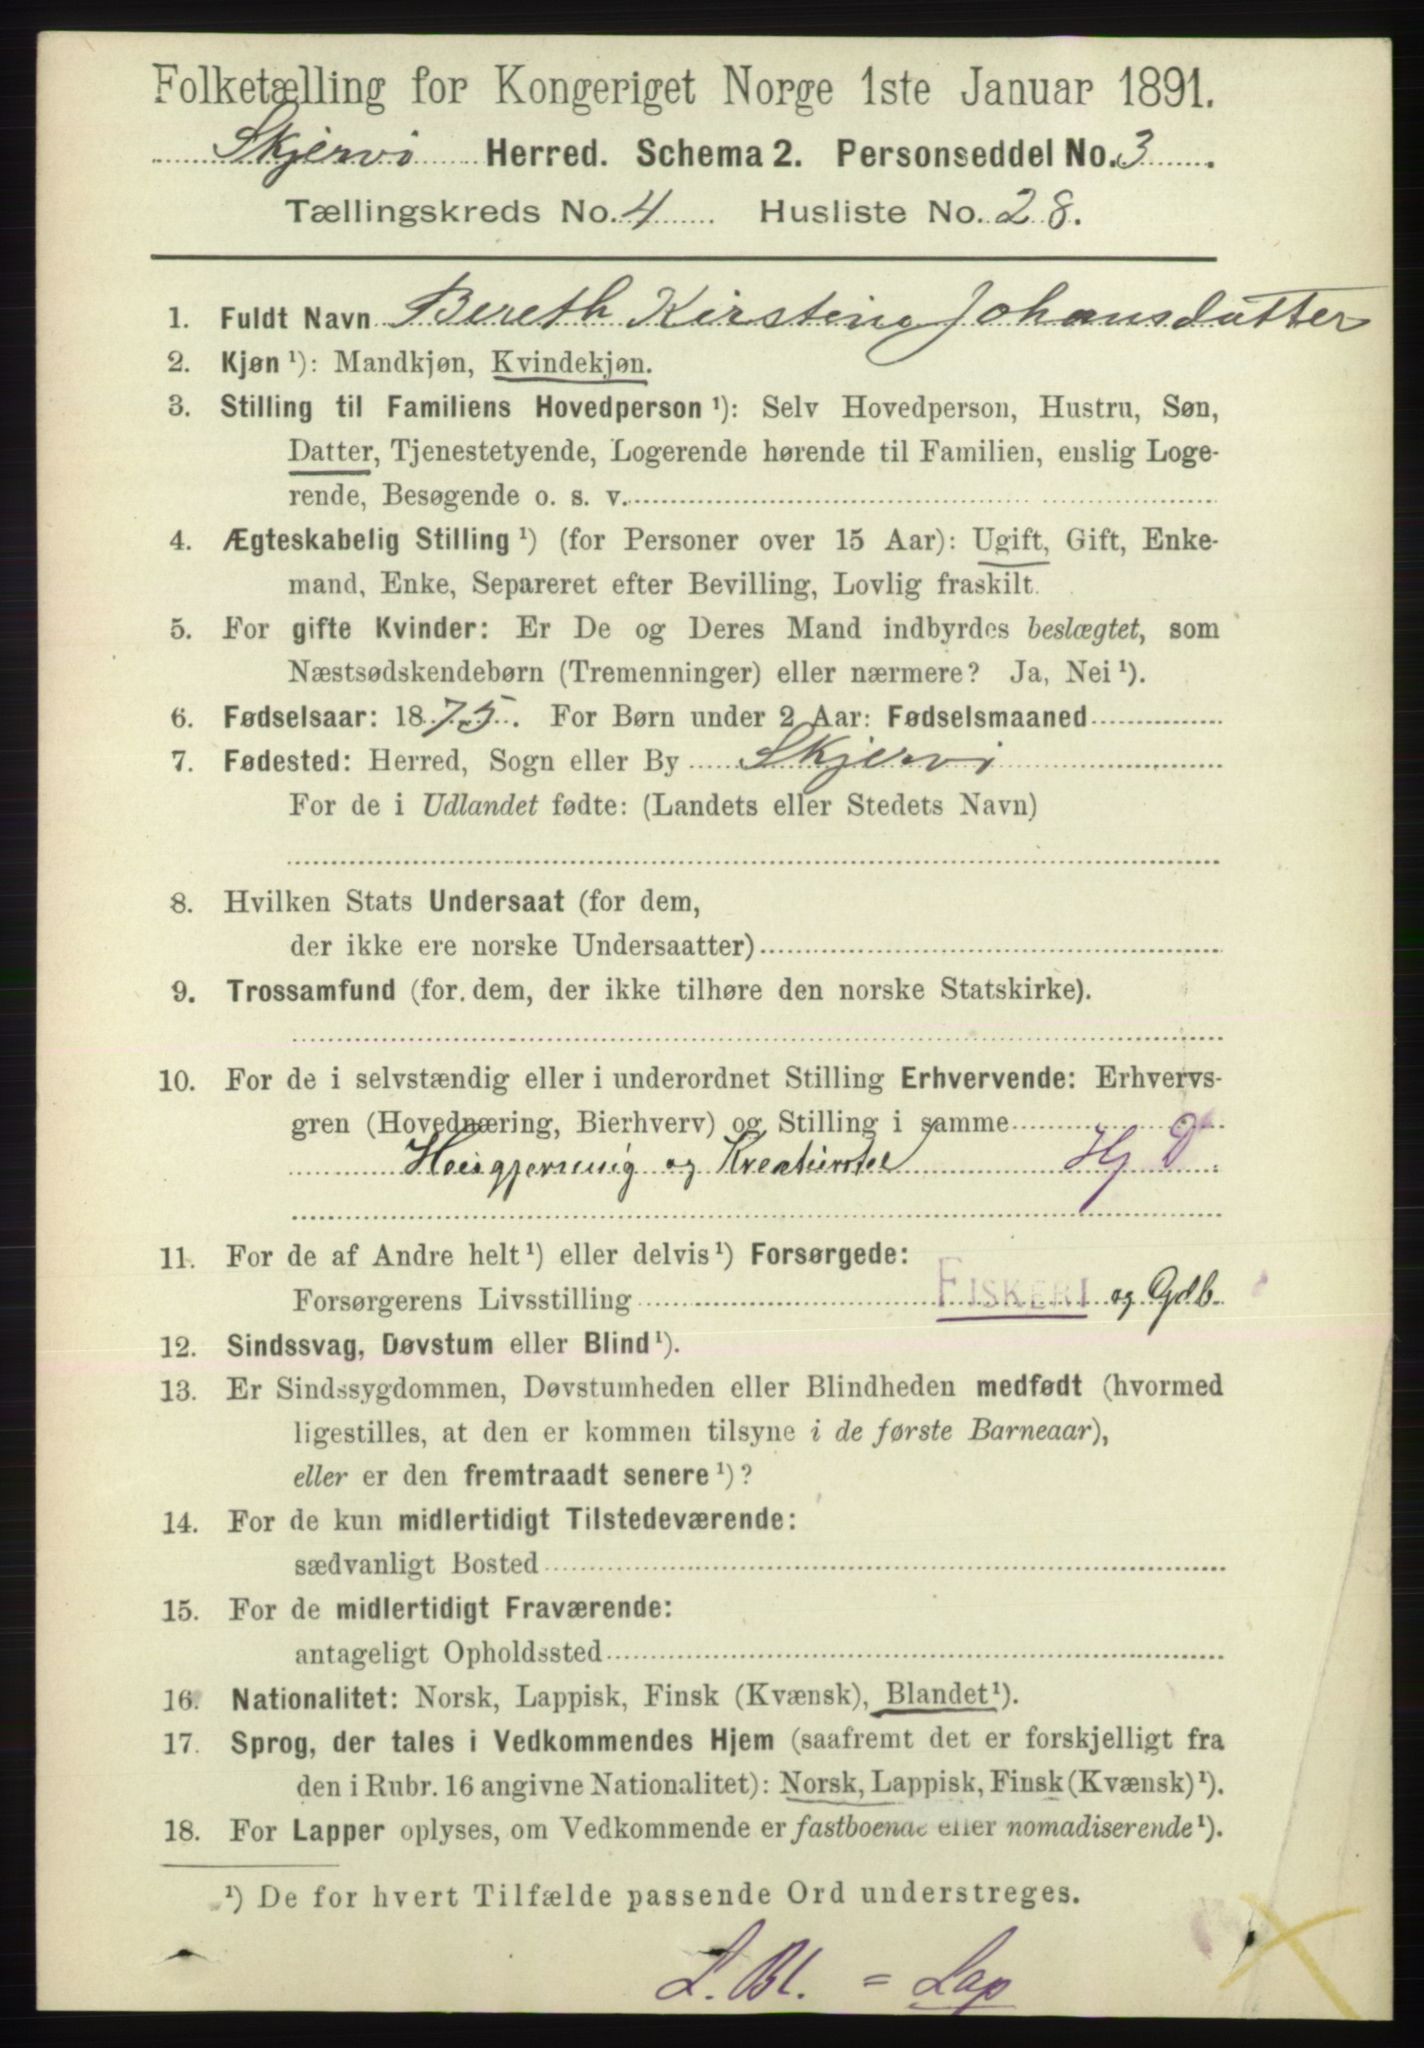 Folketælling for Kongeriget Norge 1ste Januar 1891.
Skjervø Herred. Schema 2. Personseddel No. 3.
Tællingskreds No. 4 Husliste No. 28.
1. Fuldt Navn Bereth Kirstine Johansdatter
2. Kjøn ¹): Mandkjøn, Kvindekjøn.
3. Stilling til Familiens Hovedperson ¹): Selv Hovedperson, Hustru, Søn,
Datter, Tjenestetyende, Logerende hørende til Familien, enslig Loge-
rende, Besøgende o. s. v.
4. Ægteskabelig Stilling ¹) (for Personer over 15 Aar): Ugift, Gift, Enke-
mand, Enke, Separeret efter Bevilling, Lovlig fraskilt.
5. For gifte Kvinder: Er De og Deres Mand indbyrdes beslægtet, som
Næstsødskendebørn (Tremenninger) eller nærmere? Ja, Nei ¹).
6. Fødselsaar: 1875. For Børn under 2 Aar: Fødselsmaaned
7. Fødested: Herred, Sogn eller By Skjervø
For de i Udlandet fødte: (Landets eller Stedets Navn)
8. Hvilken Stats Undersaat (for dem,
der ikke ere norske Undersaatter)
9. Trossamfund (for dem, der ikke tilhøre den norske Statskirke).
10. For de i selvstændig eller i underordnet Stilling Erhvervende: Erhvervs-
gren (Hovednæring, Bierhverv) og Stilling i samme
Husgjerning og Kreaturstel Hj D
11. For de af Andre helt ¹) eller delvis ¹) Forsørgede:
Forsørgerens Livsstilling FISKERI og Gdb.
12. Sindssvag, Døvstum eller Blind ¹).
13. Er Sindssygdommen, Døvstumheden eller Blindheden medfødt (hvormed
ligestilles, at den er kommen tilsyne i de første Barneaar),
eller er den fremtraadt senere ¹)?
14. For de kun midlertidigt Tilstedeværende:
sædvanligt Bosted
15. For de midlertidigt Fraværende:
antageligt Opholdssted
16. Nationalitet: Norsk, Lappisk, Finsk (Kvænsk), Blandet ¹).
17. Sprog, der tales i Vedkommendes Hjem (saafremt det er forskjelligt fra
den i Rubr. 16 angivne Nationalitet): Norsk, Lappisk, Finsk (Kvænsk) ¹).
18. For Lapper oplyses, om Vedkommende er fastboende eller nomadiserende ¹).
¹) De for hvert Tilfælde passende Ord understreges.
L. Bl. = Lap